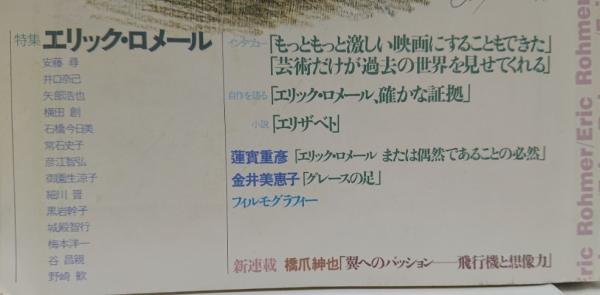 特集 エリック・ロメール
安藤 尋
井口奈己
矢部浩也
横田 創
石橋今日美
常石史子
彦江智弘
御園生涼子
細川 晋
黒岩幹子
城殿智行
梅本洋一
谷 昌親
野崎 歓
インタヴュー「もっともっと激しい映画にすることもできた」
「芸術だけが過去の世界を見せてくれる」
自作を語る「エリック・ロメール、確かな証拠」
小説「エリザベト」
蓮實重彦「エリック・ロメール または偶然であることの必然」
金井美恵子「グレースの足」
フィルモグラフィー
新連載 橋爪紳也「翼へのパッション——飛行機と想像力」
Eric Rohmer/Eric Rohmer/